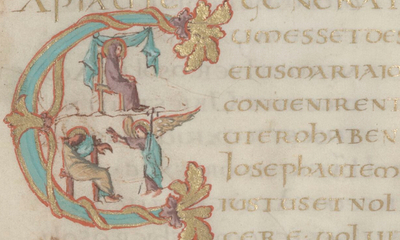 CUMESSETDES
EIUSMARIAIO
CONUENIRENT
UTEROHABEN
IOSEPHAUTEM
IUSTUSETNOL
CERE·UOLUI